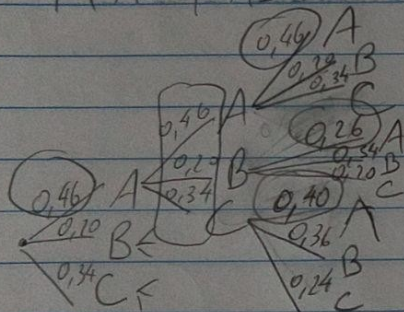 0,46 A
0,20 B
0,34 C
0,46 A
0,20 B
0,34 C
0,46 A
0,20 B
0,34 C
0,26 A
0,54 B
0,20 C
0,40 A
0,36 B
0,24 C